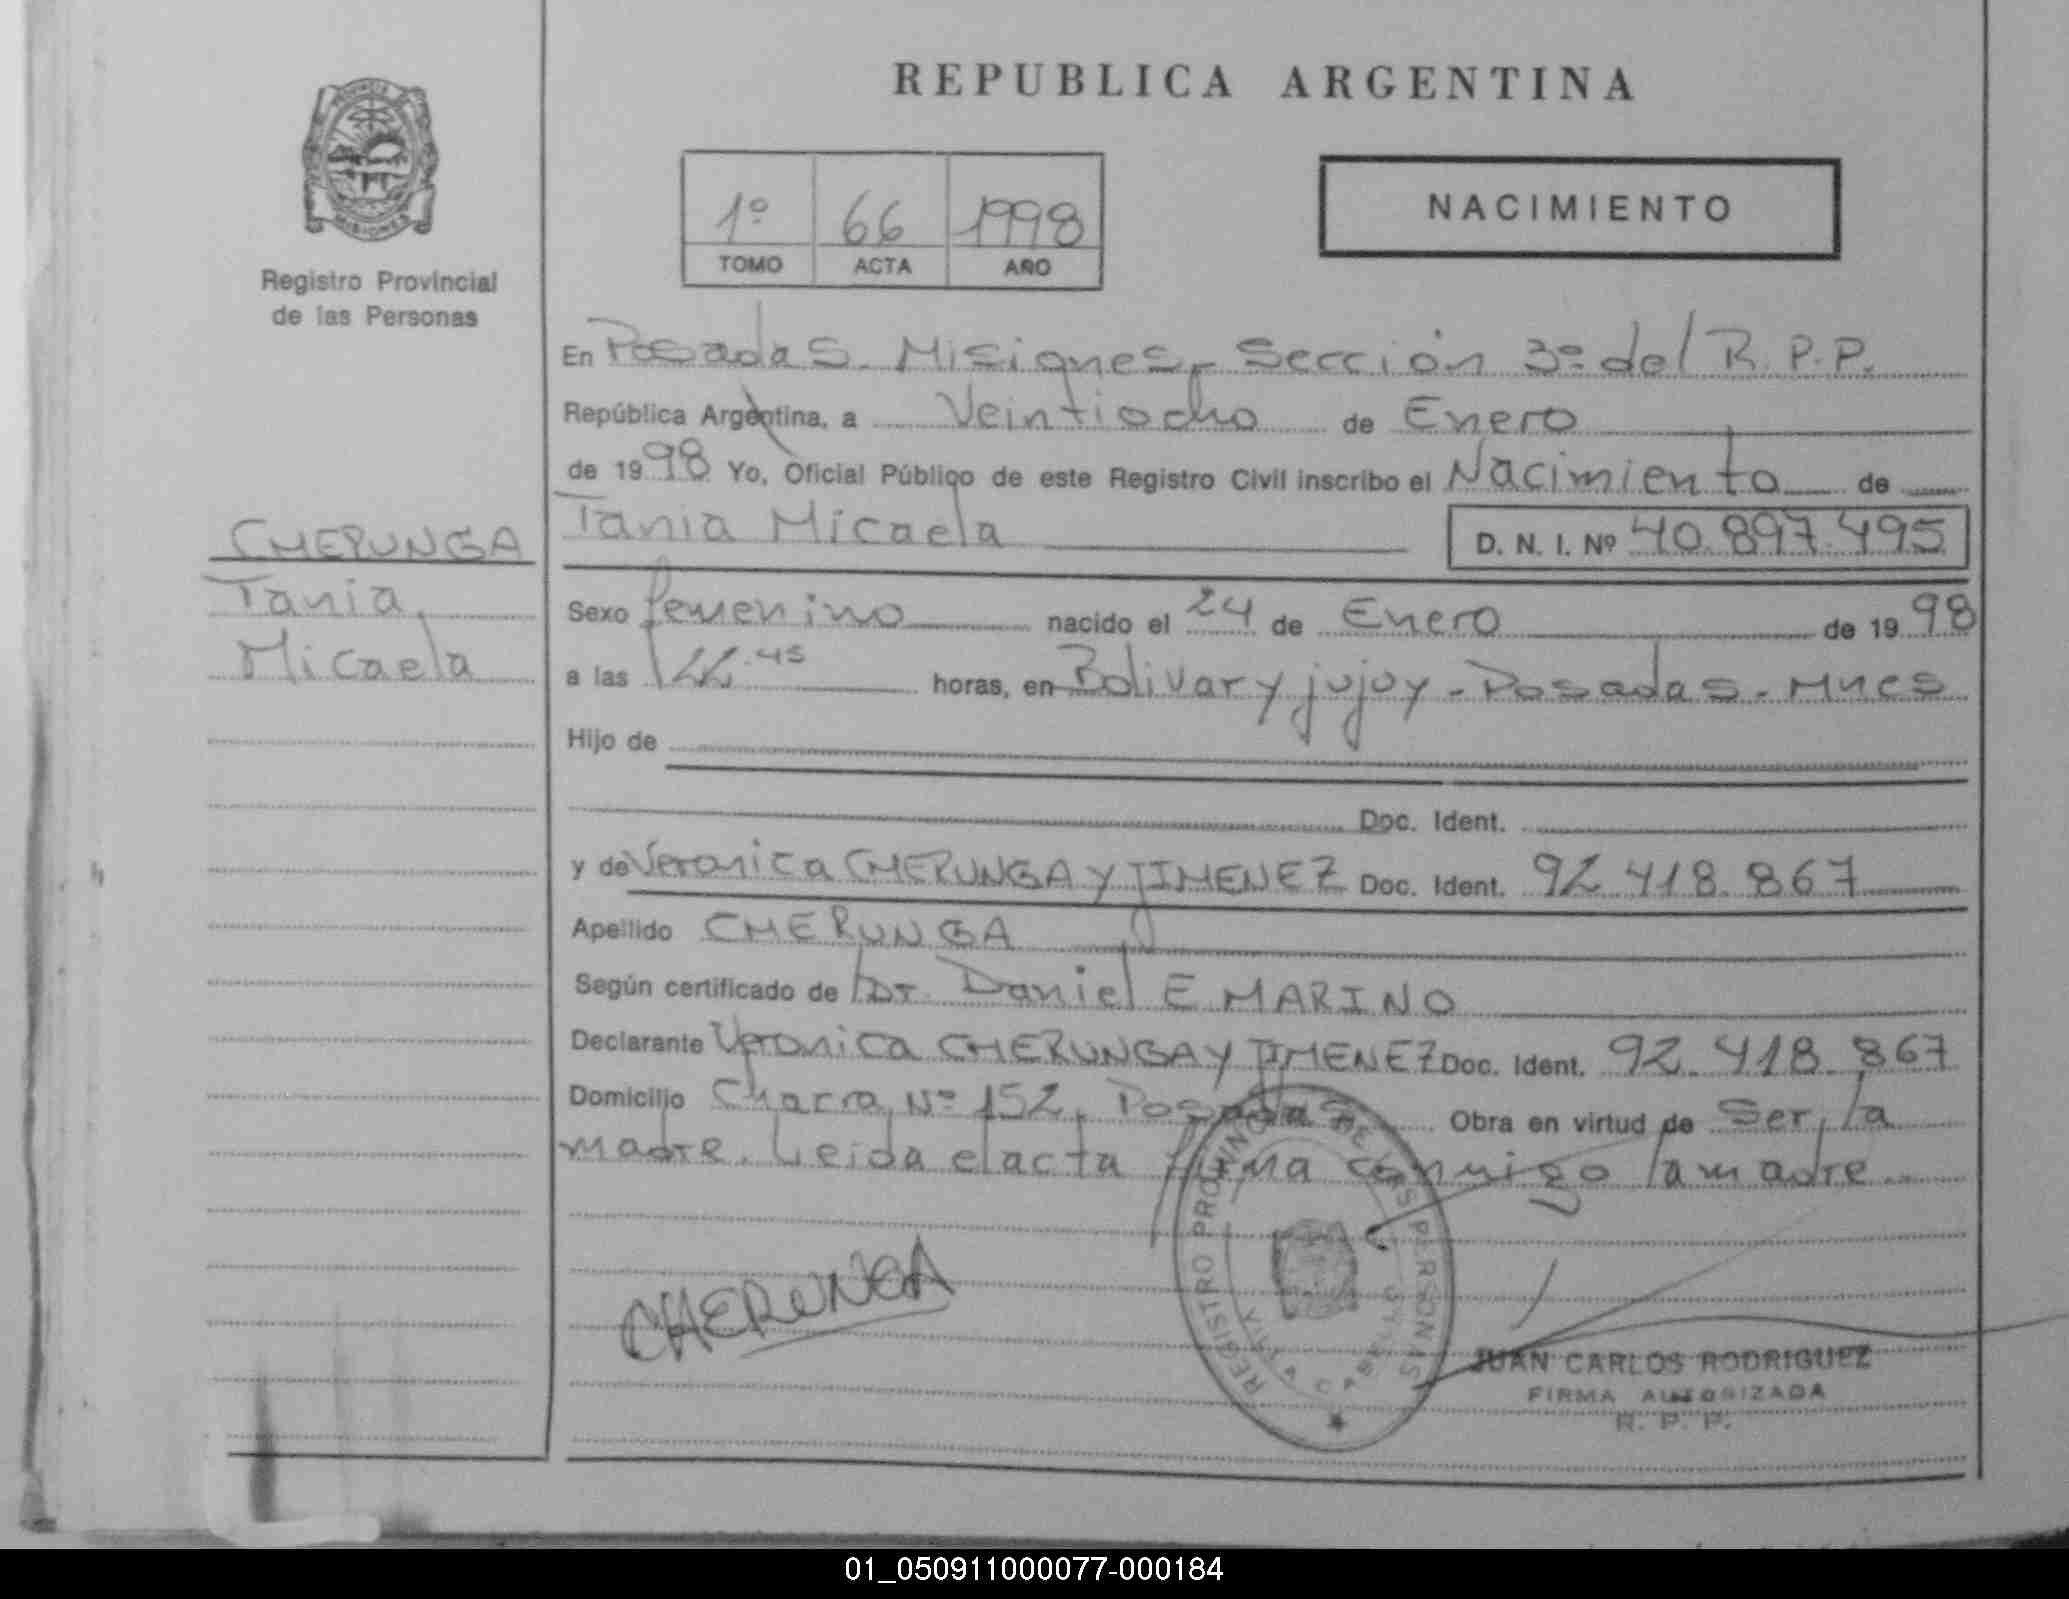 REPUBLICA ARGENTINA
PROVINCIA DE
MISIONES
Registro Provincial
de las Personas
1º 66 1998
TOMO ACTA AÑO
NACIMIENTO
En Posadas. Misiones, Sección 3º del R.P.P.
República Argentina, a Veintiocho de Enero
de 1998 Yo, Oficial Público de este Registro Civil inscribo el Nacimiento de
Tania Micaela D. N. I. Nº 40.897.495
CHERUNGA
Tania
Micaela
Sexo femenino nacido el 24 de Enero de 1998
a las horas, en Bolivar y jujuy - Posadas - Mnes
Hijo de
Doc. Ident.
y de Veronica CHERUNGA Y JIMENEZ Doc. Ident. 92.418.867
Apellido CHERUNGA
Según certificado de Dr. Daniel E MARINO
Declarante Veronica CHERUNGA Y JIMENEZ Doc. Ident. 92.418.867
Domicilio Chacra Nº 152, Posadas Obra en virtud de Ser la
madre. Leida el acta firma conmigo la madre
CHERUNGA
REGISTRO PROVINCIAL DE LAS PERSONAS
JUAN CARLOS RODRIGUEZ
FIRMA AUTORIZADA
R. P. P.
01_050911000077-000184